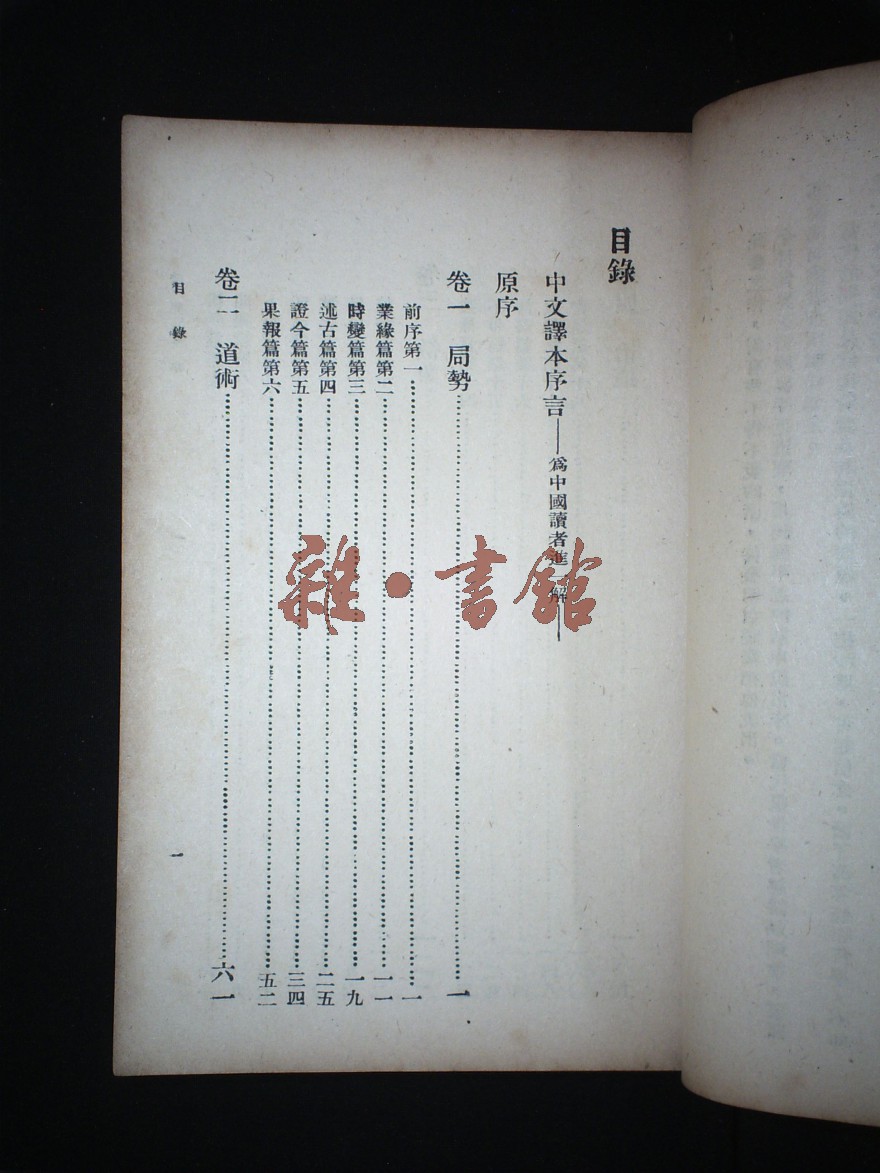 目錄
中文譯本序言——爲中國讀者進一解——
原序
卷一 局勢…………一
前序第一…………一
業緣篇第二…………一一
時變篇第三…………一九
述古篇第四…………二五
證今篇第五…………三四
果報篇第六…………五二
卷二 道術…………六一
目錄
一
雜·書館